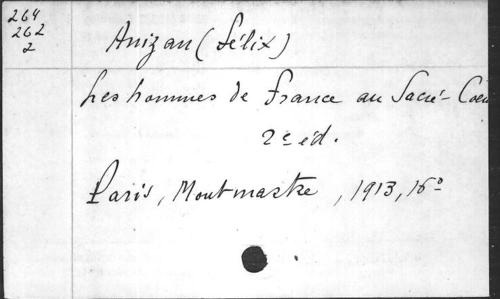 264
262
2
Anizan (Félix)
Les hommes de France au Sacré-Coeu
2e éd.
Paris, Montmartre, 1913, 16º